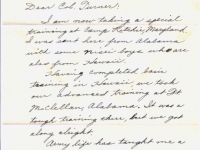 Dear Col. Turner:
I am now taking a special
training at Camp Ritchie, Maryland.
I was sent here from Alabama
with some nice boys who are
also from Hawaii.
Having completed basic
training in Hawaii we took
our advanced training at Ft.
McClellan, Alabama. It was a
tough training there, but we got
along alright.
Army life has taught me a